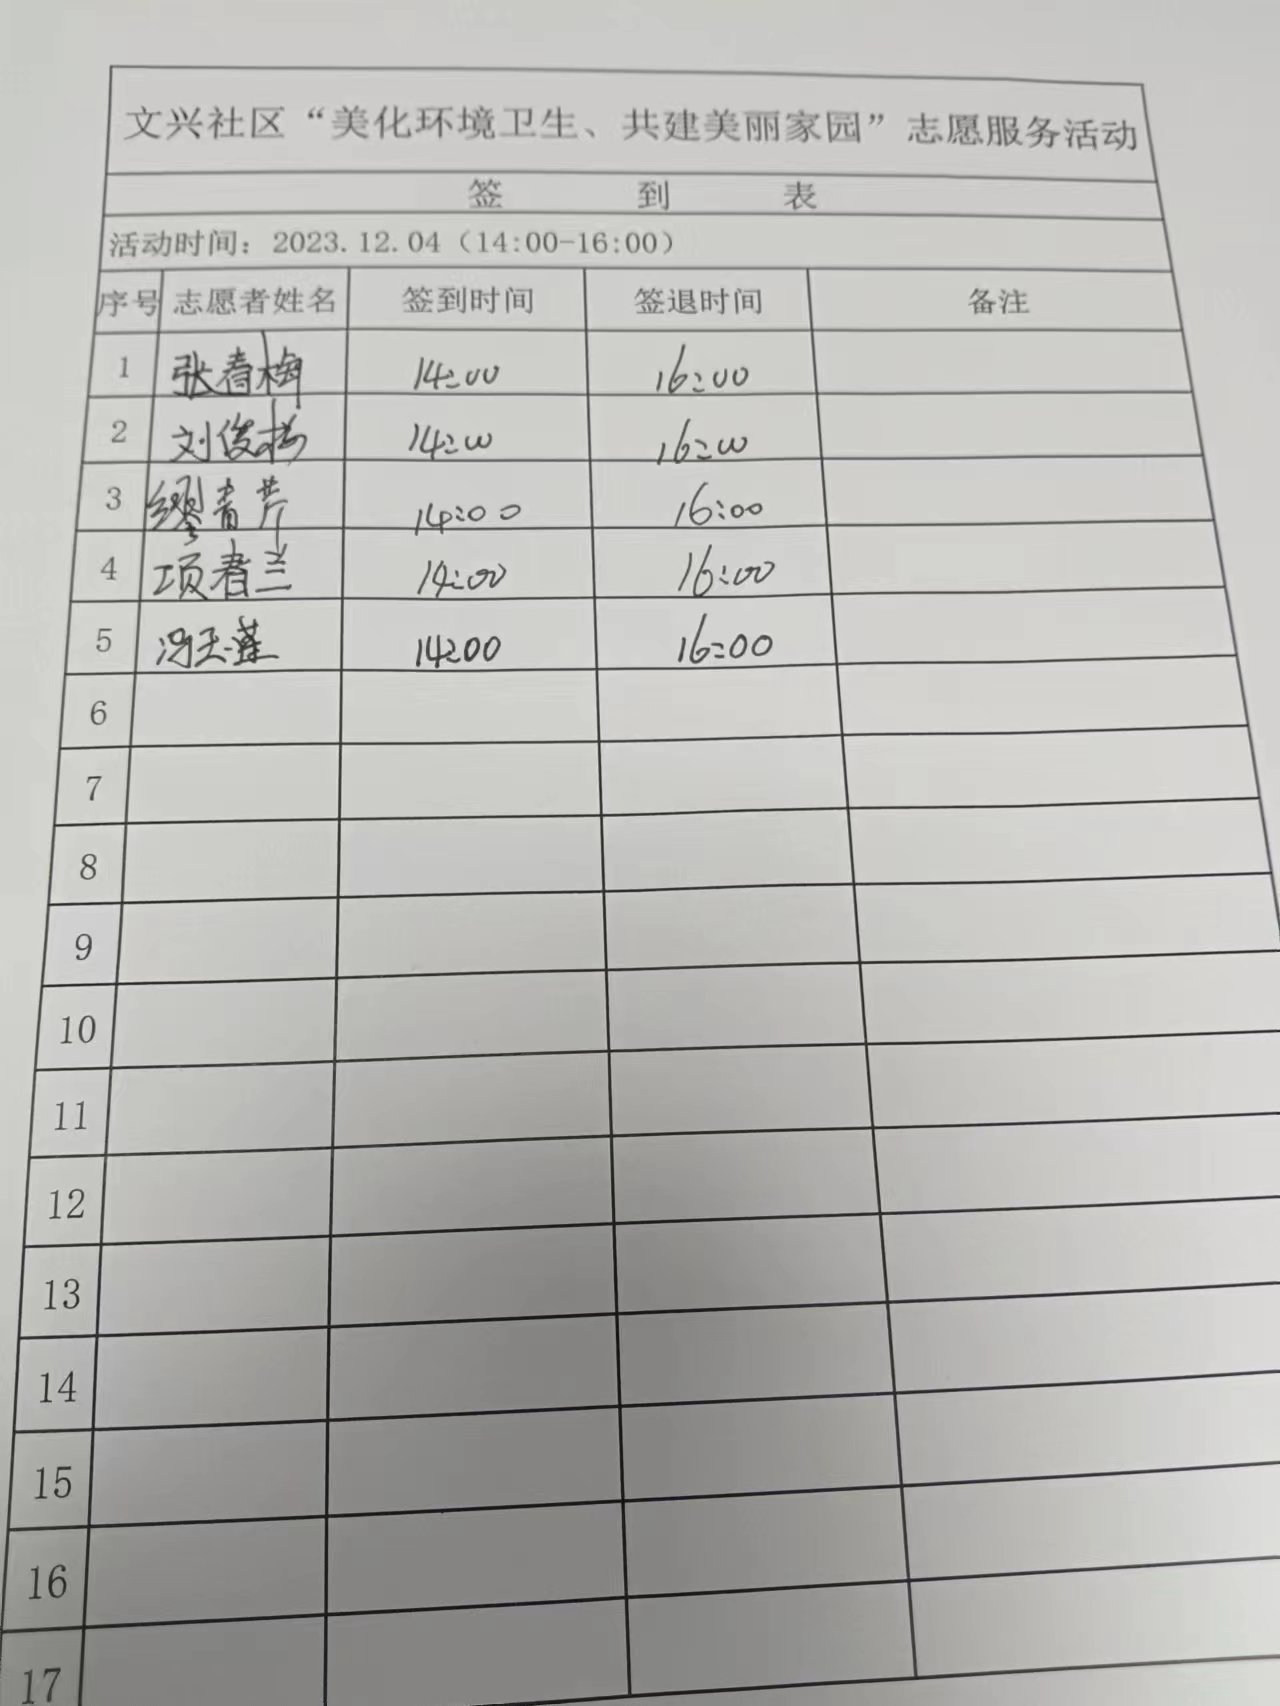 文兴社区“美化环境卫生、共建美丽家园”志愿服务活动
签 到 表
活动时间：2023.12.04（14:00-16:00）
序号 志愿者姓名 签到时间 签退时间 备注
1 张春梅 14:00 16:00
2 刘俊梅 14:00 16:00
3 缪青芹 14:00 16:00
4 项春兰 14:00 16:00
5 冯玉莲 14:00 16:00
6
7
8
9
10
11
12
13
14
15
16
17